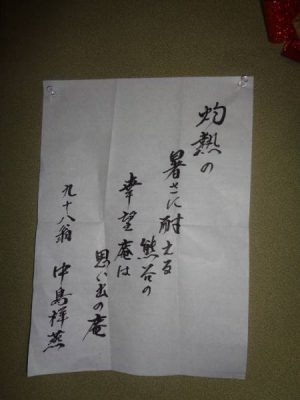 灼熱の
暑さに耐える
熊谷の
幸望庵は
思い出の庵
九十八翁 中島